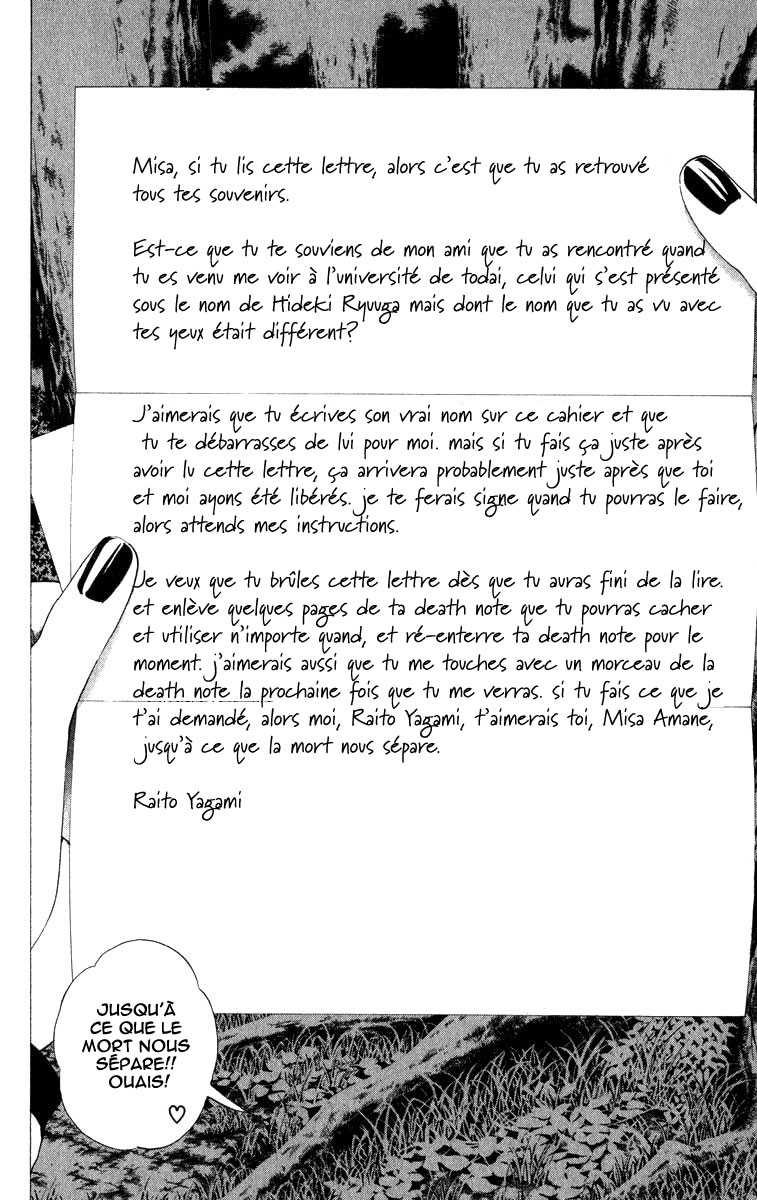 Misa, si tu lis cette lettre, alors c'est que tu as retrouvé
tous tes souvenirs.
Est-ce que tu te souviens de mon ami que tu as rencontré quand
tu es venu me voir à l'université de todai, celui qui s'est présenté
sous le nom de Hideki Ryuuga mais dont le nom que tu as vu avec
tes yeux était différent?
J'aimerais que tu écrives son vrai nom sur ce cahier et que
tu te débarrasses de lui pour moi. mais si tu fais ça juste après
avoir lu cette lettre, ça arrivera probablement juste après que toi
et moi ayons été libérés. je te ferais signe quand tu pourras le faire,
alors attends mes instructions.
Je veux que tu brûles cette lettre dès que tu auras fini de la lire.
et enlève quelques pages de ta death note que tu pourras cacher
et utiliser n'importe quand, et ré-enterre ta death note pour le
moment. j'aimerais aussi que tu me touches avec un morceau de la
death note la prochaine fois que tu me verras. si tu fais ce que je
t'ai demandé, alors moi, Raito Yagami, t'aimerais toi, Misa Amane,
jusqu'à ce que la mort nous sépare.
Raito Yagami
JUSQU'À
CE QUE LE
MORT NOUS
SÉPARE!!
OUAIS!
♡